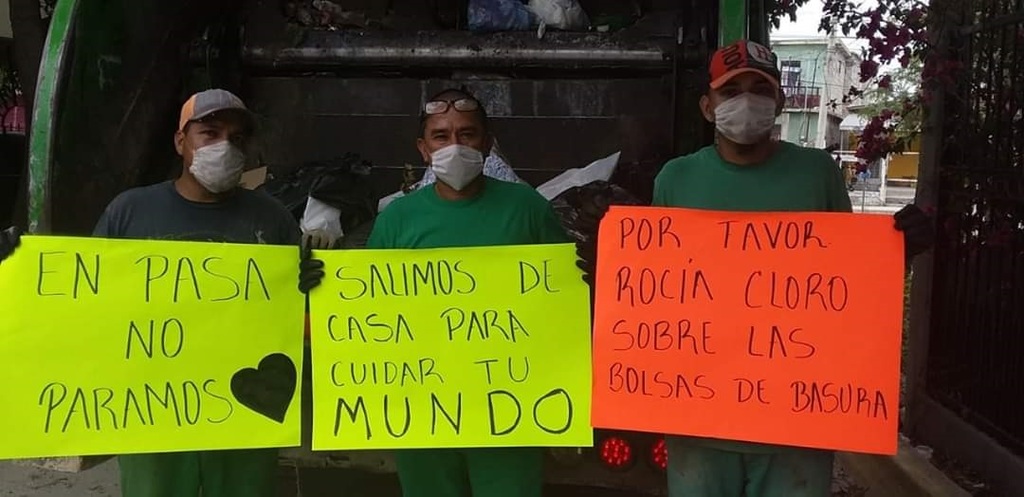 EN PASA
NO
PARAMOS
SALIMOS DE
CASA PARA
CUIDAR TU
MUNDO
POR TAVOR
ROCÍA CLORO
SOBRE LAS
BOLSAS DE BASURA